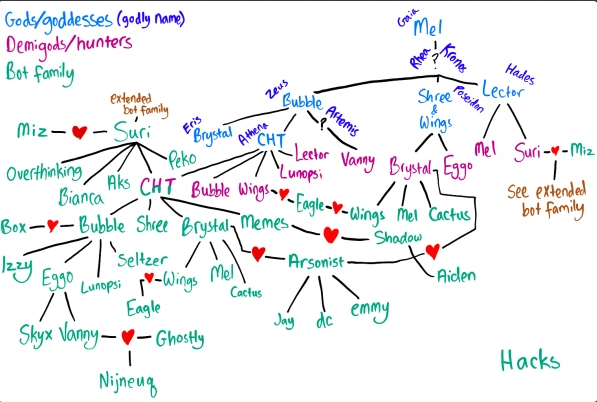 Gods/goddesses (godly name)
Demigods/hunters
Bot family
Gaia
Mel
Rhea ? Kronos
Zeus
Bubble
Hades
Lector
Poseidon
Shree
&
Wings
extended
bot family
Miz Suri
Eris
Brystal
Athena
CHT
?
Artemis
Vanny
Lector
Lunopsi
Mel Suri Miz
See extended
bot family
Overthinking
Bianca
Aks
Peko
CHT
Bubble Wings Eagle Wings
Brystal Eggo
Mel Cactus
Box Bubble Shree Brystal Memes Shadow
Aiden
Izzy
Eggo
Lunopsi
Seltzer
Eagle
Wings
Mel
Cactus
Arsonist
Jay dc emmy
Skyx Vanny Ghostly
Nijneuq
Hacks